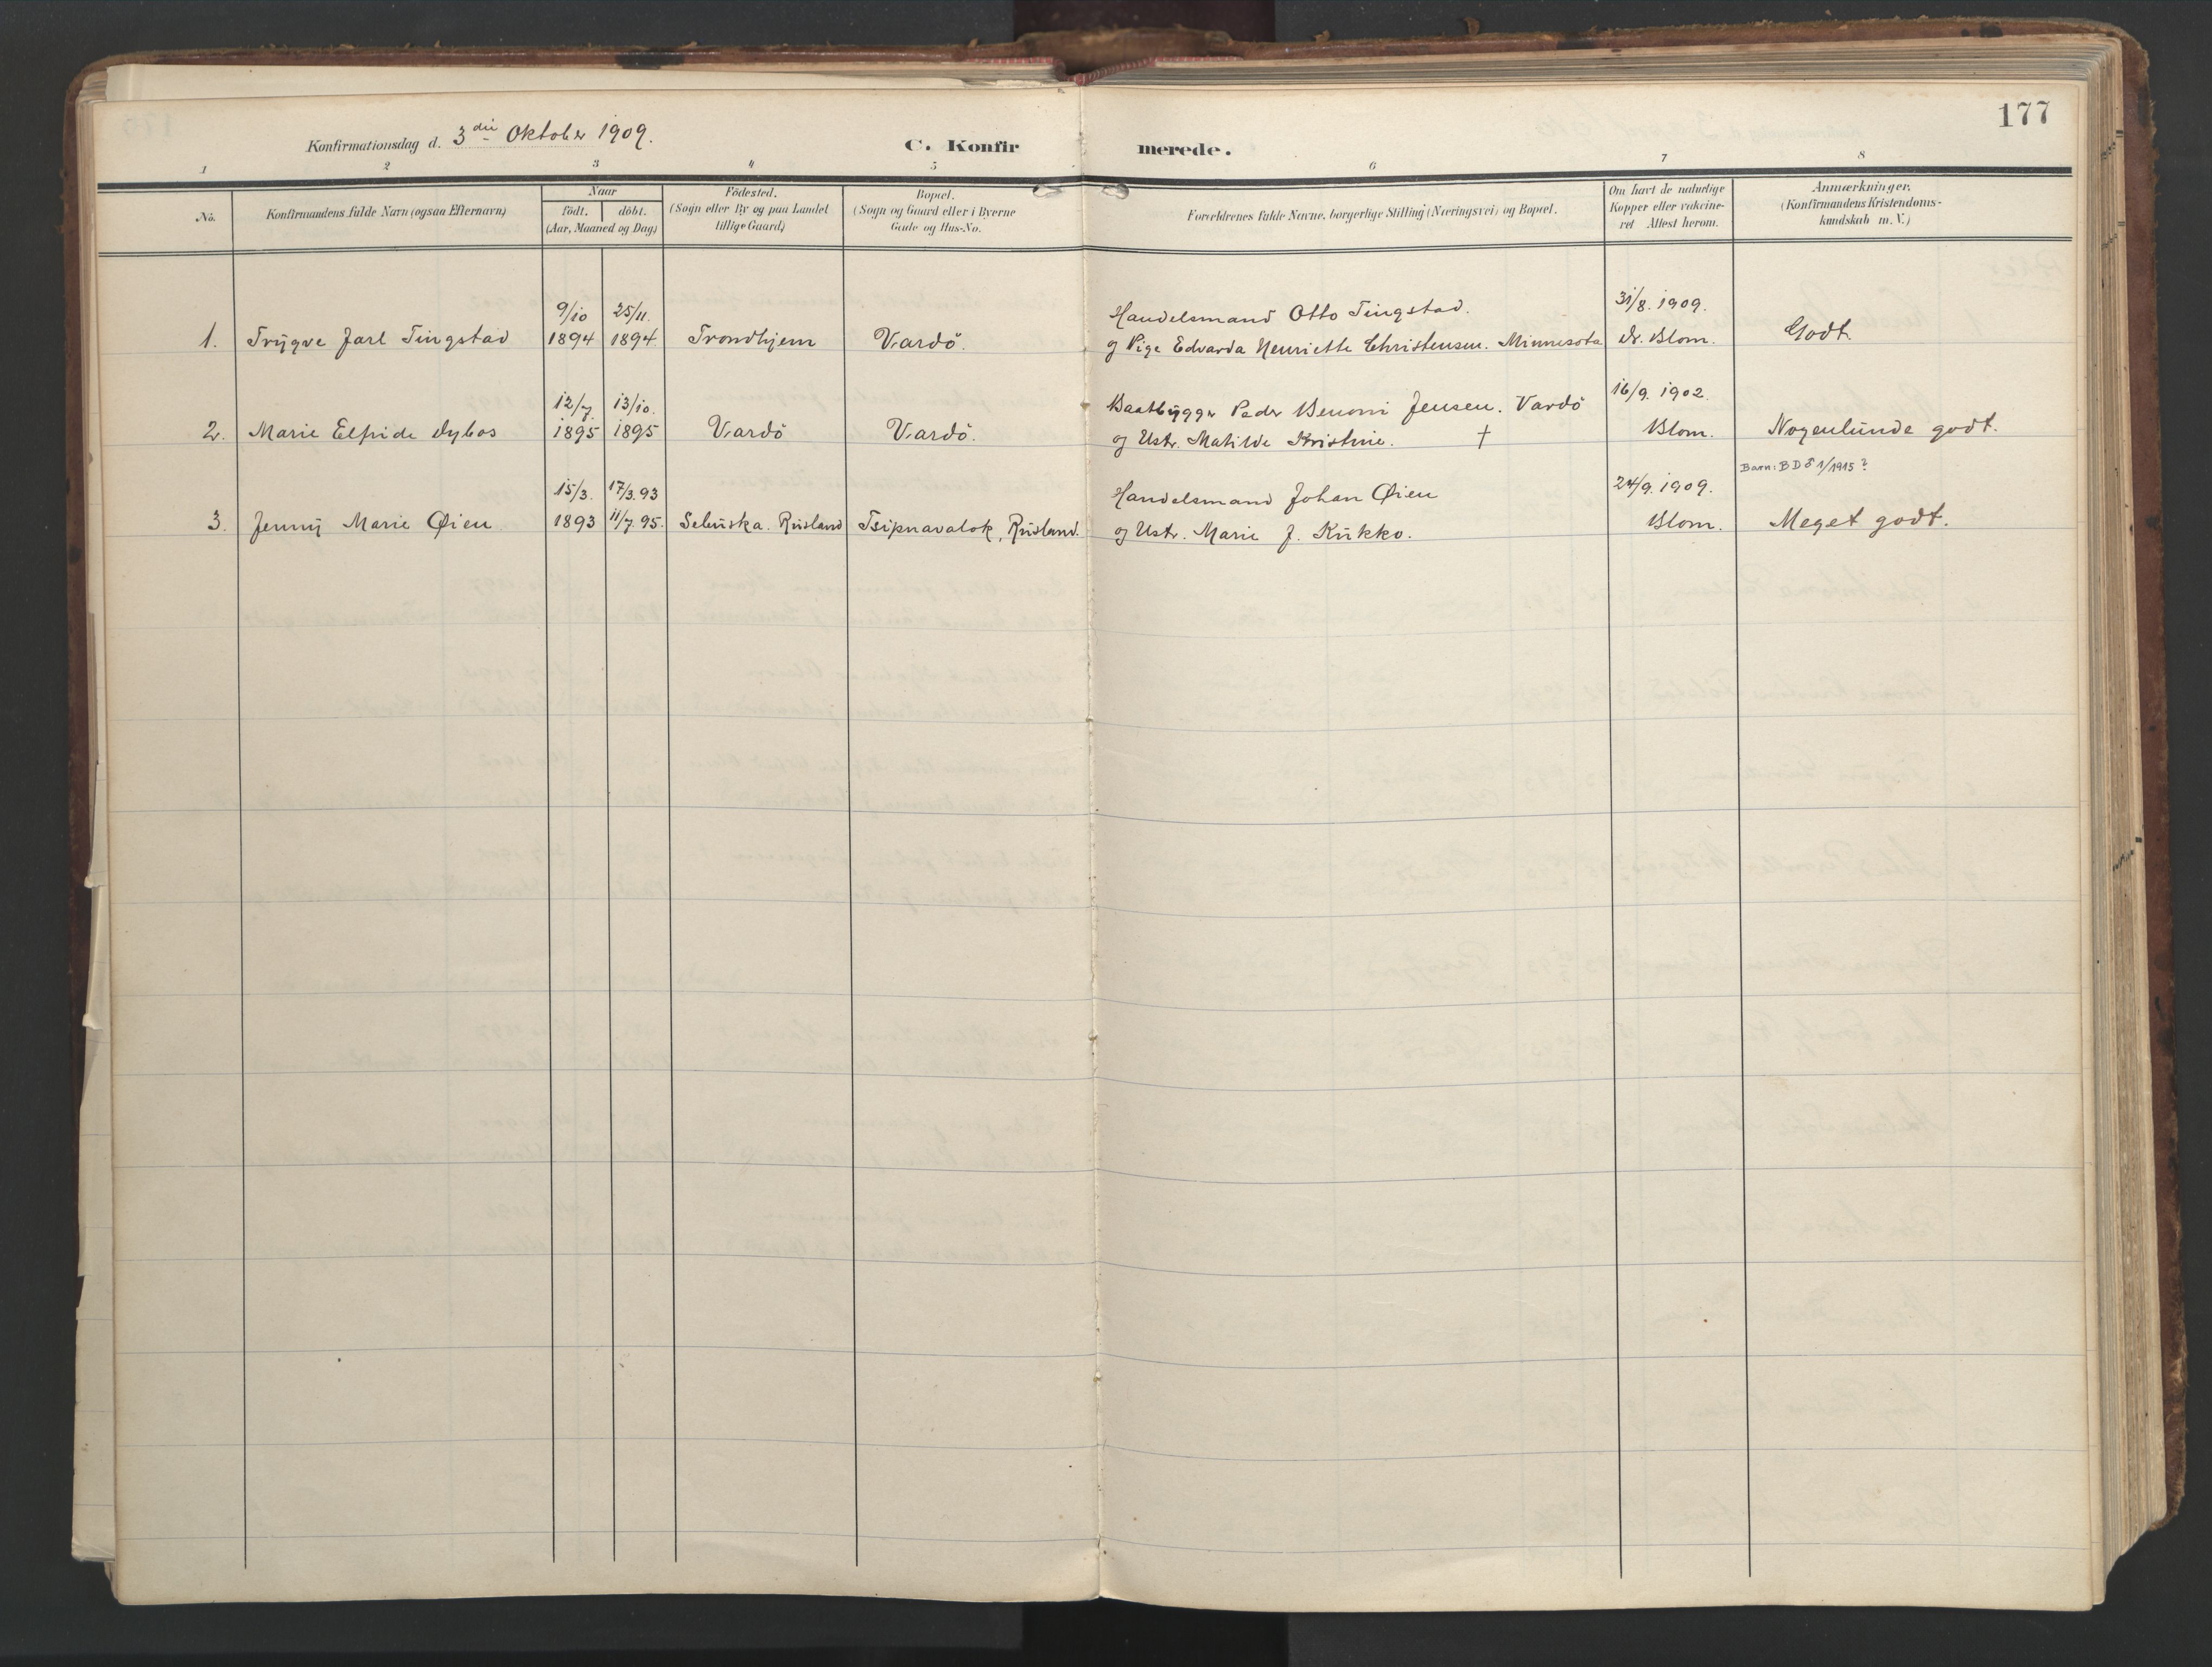 177
Konfirmationsdag d. 3die Oktober 1909.
C. Konfirmerede.
1 2 3 4 5 6 7 8
No.
Konfirmandens fulde Navn (ogsaa Efternavn)
Naar
födt. döbt.
(Aar, Maaned og Dag)
Födested.
(Sogn eller By og paa Landet
tillige Gaard)
Bopæl.
(Sogn og Gaard eller i Byerne
Gade og Hus-No.
Forældrenes fulde Navne, borgerlige Stilling (Næringsvei) og Bopæl.
Om havt de naturlige
Kopper eller vakcine-
ret Attest herom.
Anmærkninger.
(Konfirmandens Kristendoms-
kundskab m. V.)
9/10 25/11. Handelsmand Otto Tingstad. 31/8. 1909.
1. Trygve Jarl Tingstad 1894 1894 Trondhjem Vardö. og Pige Edvarda Henriette Christensen. Minnesota Dr. Blom. Godt.
12/7. 13/10. Baatbygger Peder Benoni Jensen. Vardö 16/9. 1902.
2. Marie Elfride Dybos 1895 1895 Vardö Vardö. og Ustr. Matilde Kristine. † Blom. Nogenlunde godt.
Barn: BD 1/1915?
15/3. 17/3.93 Handelsmand Johan Øien 24/9. 1909.
3. Jenny Marie Øien 1893 11/7.95. Sebuska. Rusland Tsipnavalok, Rusland. og Ustr. Marie J. Kukko. Blom. Meget godt.